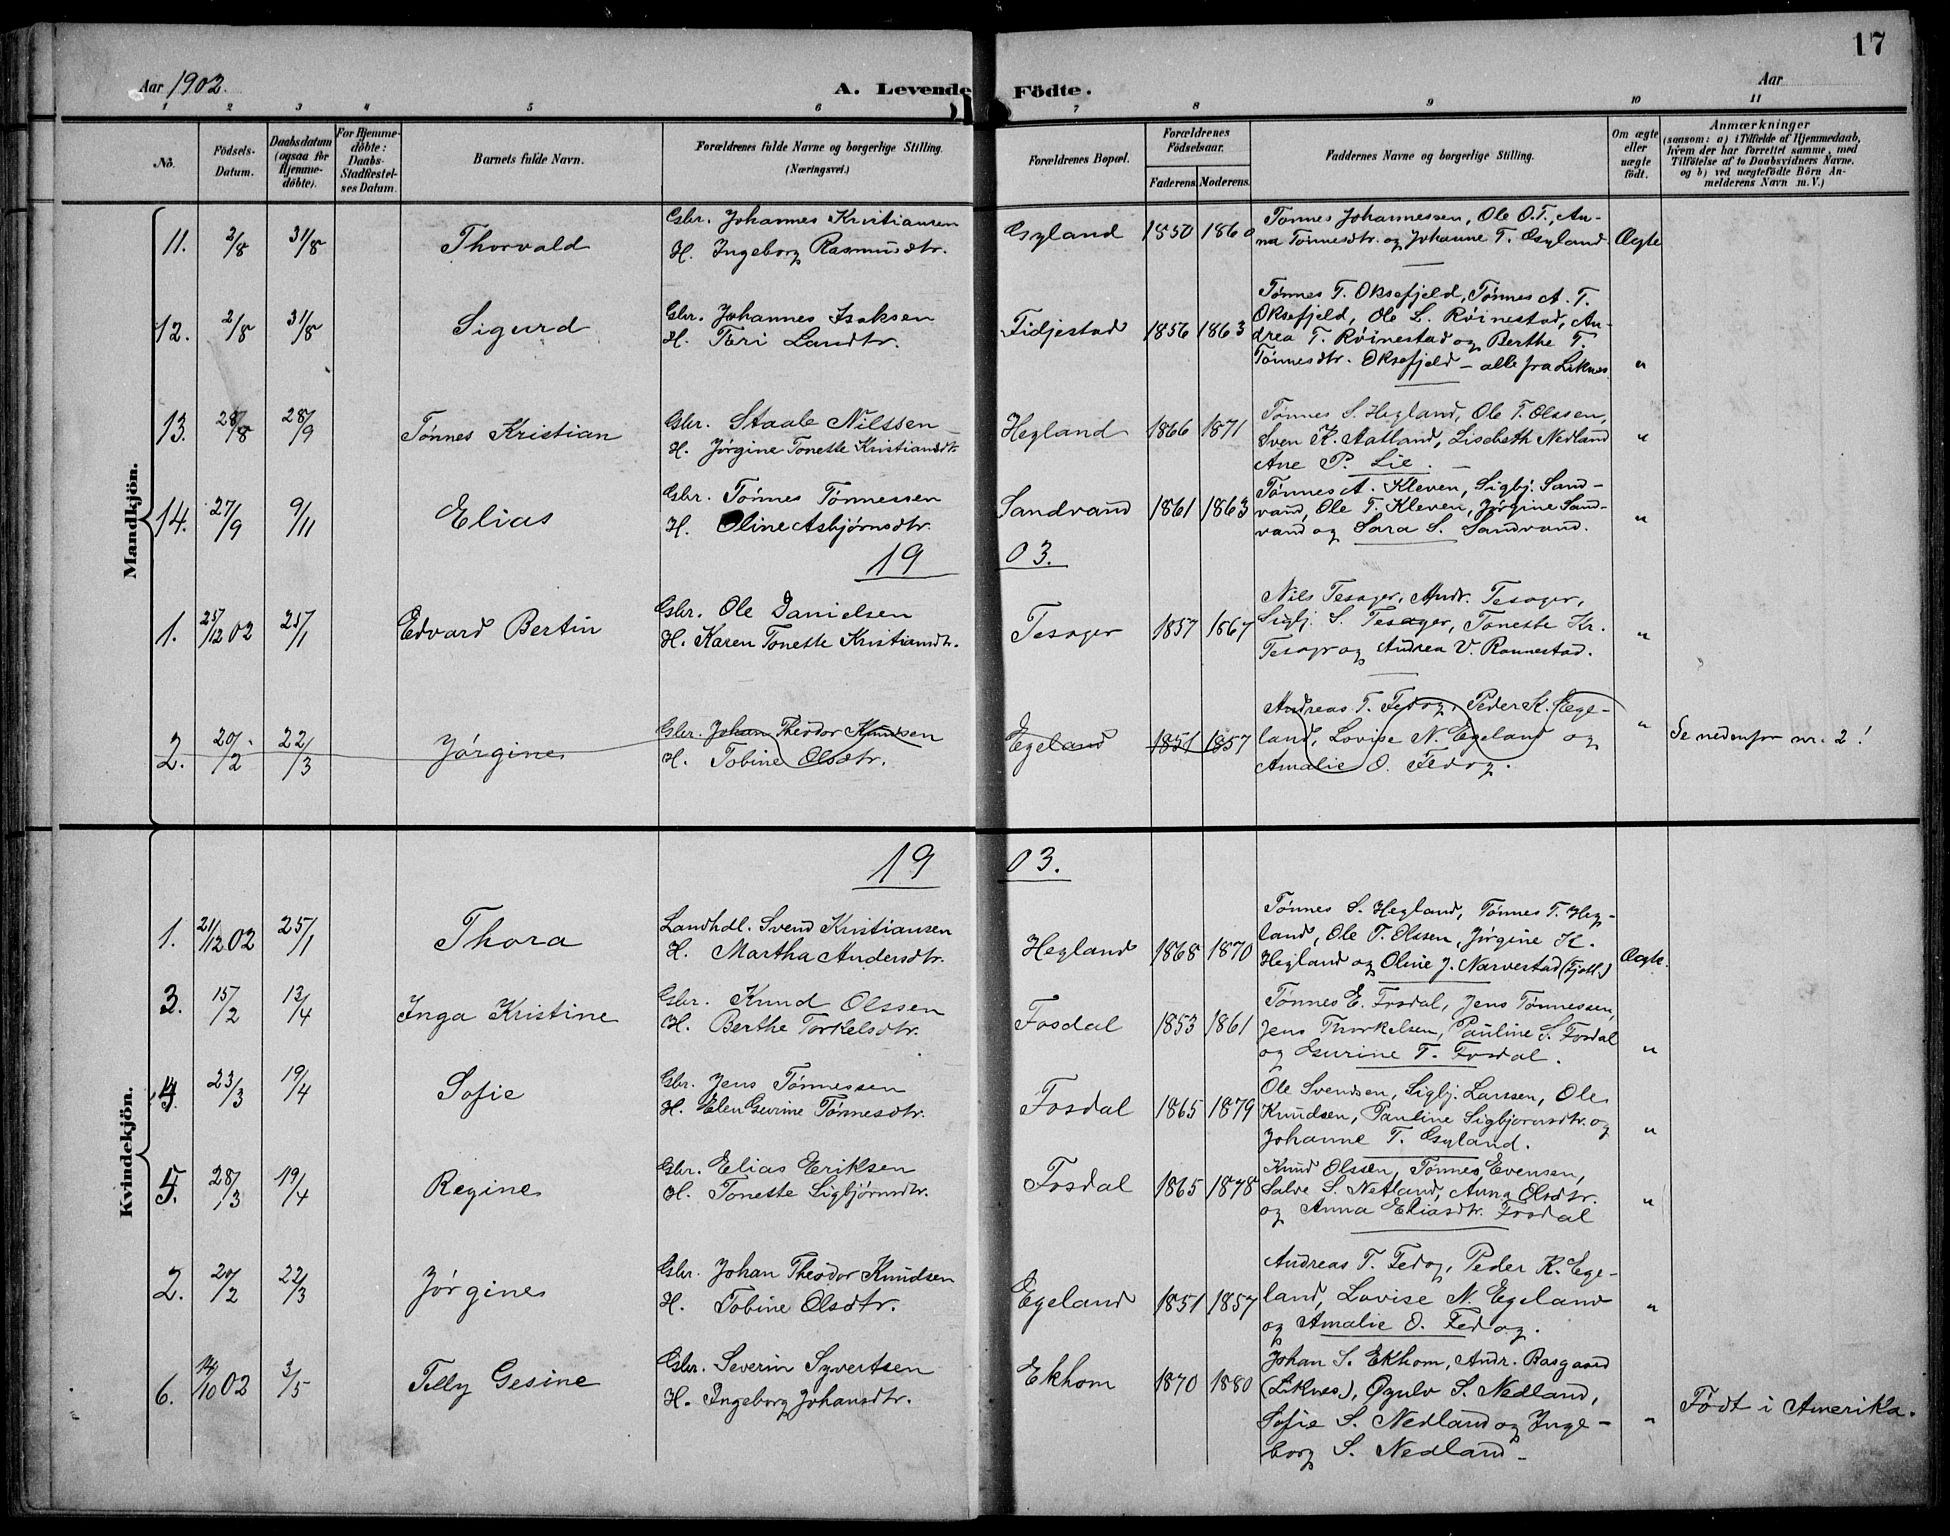 17
Aar 1902. A. Levende Fødte. Aar
1 2 3 4 5 6 7 8 9 10 11
No. Fødsels-Datum. Daabsdatum (ogsaa for Hjemmedøbte). For Hjemmedøbte: Daabs-Stadfæstelses Datum. Barnets fulde Navn. Forældrenes fulde Navne og borgerlige Stilling. (Næringsvei.) Forældrenes Bopæl. Forældrenes Fødselsaar. Faderens Moderens Faddernes Navne og borgerlige Stilling. Om ægte eller uægte født. Anmærkninger (saasom: a) i Tilfælde af Hjemmedaab, hvem der har forrettet samme, med Tilføielse af to Daabsvidners Navne. og b) ved uægtefødte Børn Anmelderens Navn m. V.)
Mandkjøn.
11. 2/8 31/8 Thorvald Gbr. Johannes Kristiansen Gyland 1850 1860 Tønnes Johannessen, Ole O.T., An-
H. Ingeborg Rasmusdtr. na Tønnesdtr. og Johanne T. Gyland. Ægte
12. 2/8 31/8 Sigurd Gbr. Johannes Isaksen Fidjestad 1856 1863 Tønnes T. Oksefjeld, Tønnes A. T.
H. Teri Landtr. Oksefjeld, Ole L. Röinestad, An-
drea T. Röinestad og Berthe T.
Tønnesdtr. Oksefjeld – alle fra Liknes. "
13. 28/8 28/9 Tønnes Kristian Gbr. Staale Nilssen Hegland 1866 1871 Tønnes S. Hegland, Ole T. Olssen,
H. Jørgine Tonette Kristiansdtr. Sven K. Aatland, Lisebeth Nedland "
Ane P. Lie.
14. 27/9 9/11 Elias Gbr. Tønnes Tønnessen Sandvand 1861 1863 Tønnes A. Kleven, Sigbj. Sand-
H. Oline Asbjørnsdtr. vand, Ole T. Kleven, Jørgine Sand-
vand og Sara S. Sandvand. "
19 03.
1. 25/12 02 25/1 Edvard Bertin Gbr. Ole Danielsen Tesager 1857 1867 Nils Tesager, Andr. Tesager,
H. Karen Tonette Kristiansdtr. Sigbj. S. Tesager, Tonette Kr.
Tesager og Andrea V. Rannestad. "
2. 20/2 22/3 Jørgine Gbr. Johan Theodor Knudsen Egeland 1851 1857 Andreas T. Fedog, Peder K. Ege-
H. Tobine Olsdtr. land, Lovise N. Egeland og " Se nedenfor nr. 2!
Amalie O. Fedog.
Kvindekjøn.
19 03.
1. 21/12 02 25/1 Thora Landhdl. Svend Kristiansen Hegland 1868 1870 Tønnes S. Hegland, Tønnes T. Heg-
H. Martha Andersdtr. land, Ole T. Olssen, Jørgine K.
Hegland og Oline J. Narvestad (Fjotl.) Ægte.
3. 15/2 13/4 Inga Kristine Gbr. Knud Olssen Fosdal 1853 1861 Tønnes E. Fosdal, Jens Tønnessen,
H. Berthe Torkelsdtr. Jens Thorkelsen, Pauline S. Fosdal
og Gurine T. Fosdal. "
4. 23/3 19/4 Sofie Gbr. Jens Tønnessen Fosdal 1865 1879 Ole Svendsen, Sigbj. Larssen, Ole
H. Elen Gevine Tønnesdtr. Knudsen, Pauline Sigbjørnsdtr. og
Johanne T. Gyland. "
5. 28/3 19/4 Regine Gbr. Elias Eriksen Fosdal 1865 1878 Knud Olssen, Tønnes Evensen,
H. Tonette Sigbjørnsdtr. Salve S. Netland, Anna Olsdtr.
og Anna Eliasdtr. Fosdal "
2. 20/2 22/3 Jørgine Gbr. Johan Theodor Knudsen Egeland 1851 1857 Andreas T. Fedog, Peder K. Ege-
H. Tobine Olsdtr. land, Lovise N. Egeland
og Amalie O. Fedog. "
6. 14/10 02 3/5 Tilly Gesine Gbr. Severin Syvertsen Ekhom 1870 1880 Johan S. Ekhom, Andr. Basgaard
H. Ingeborg Johansdtr. (Liknes), Øyulv S. Nedland,
Sofie S. Nedland og Inge- " Født i Amerika.
borg S. Nedland.